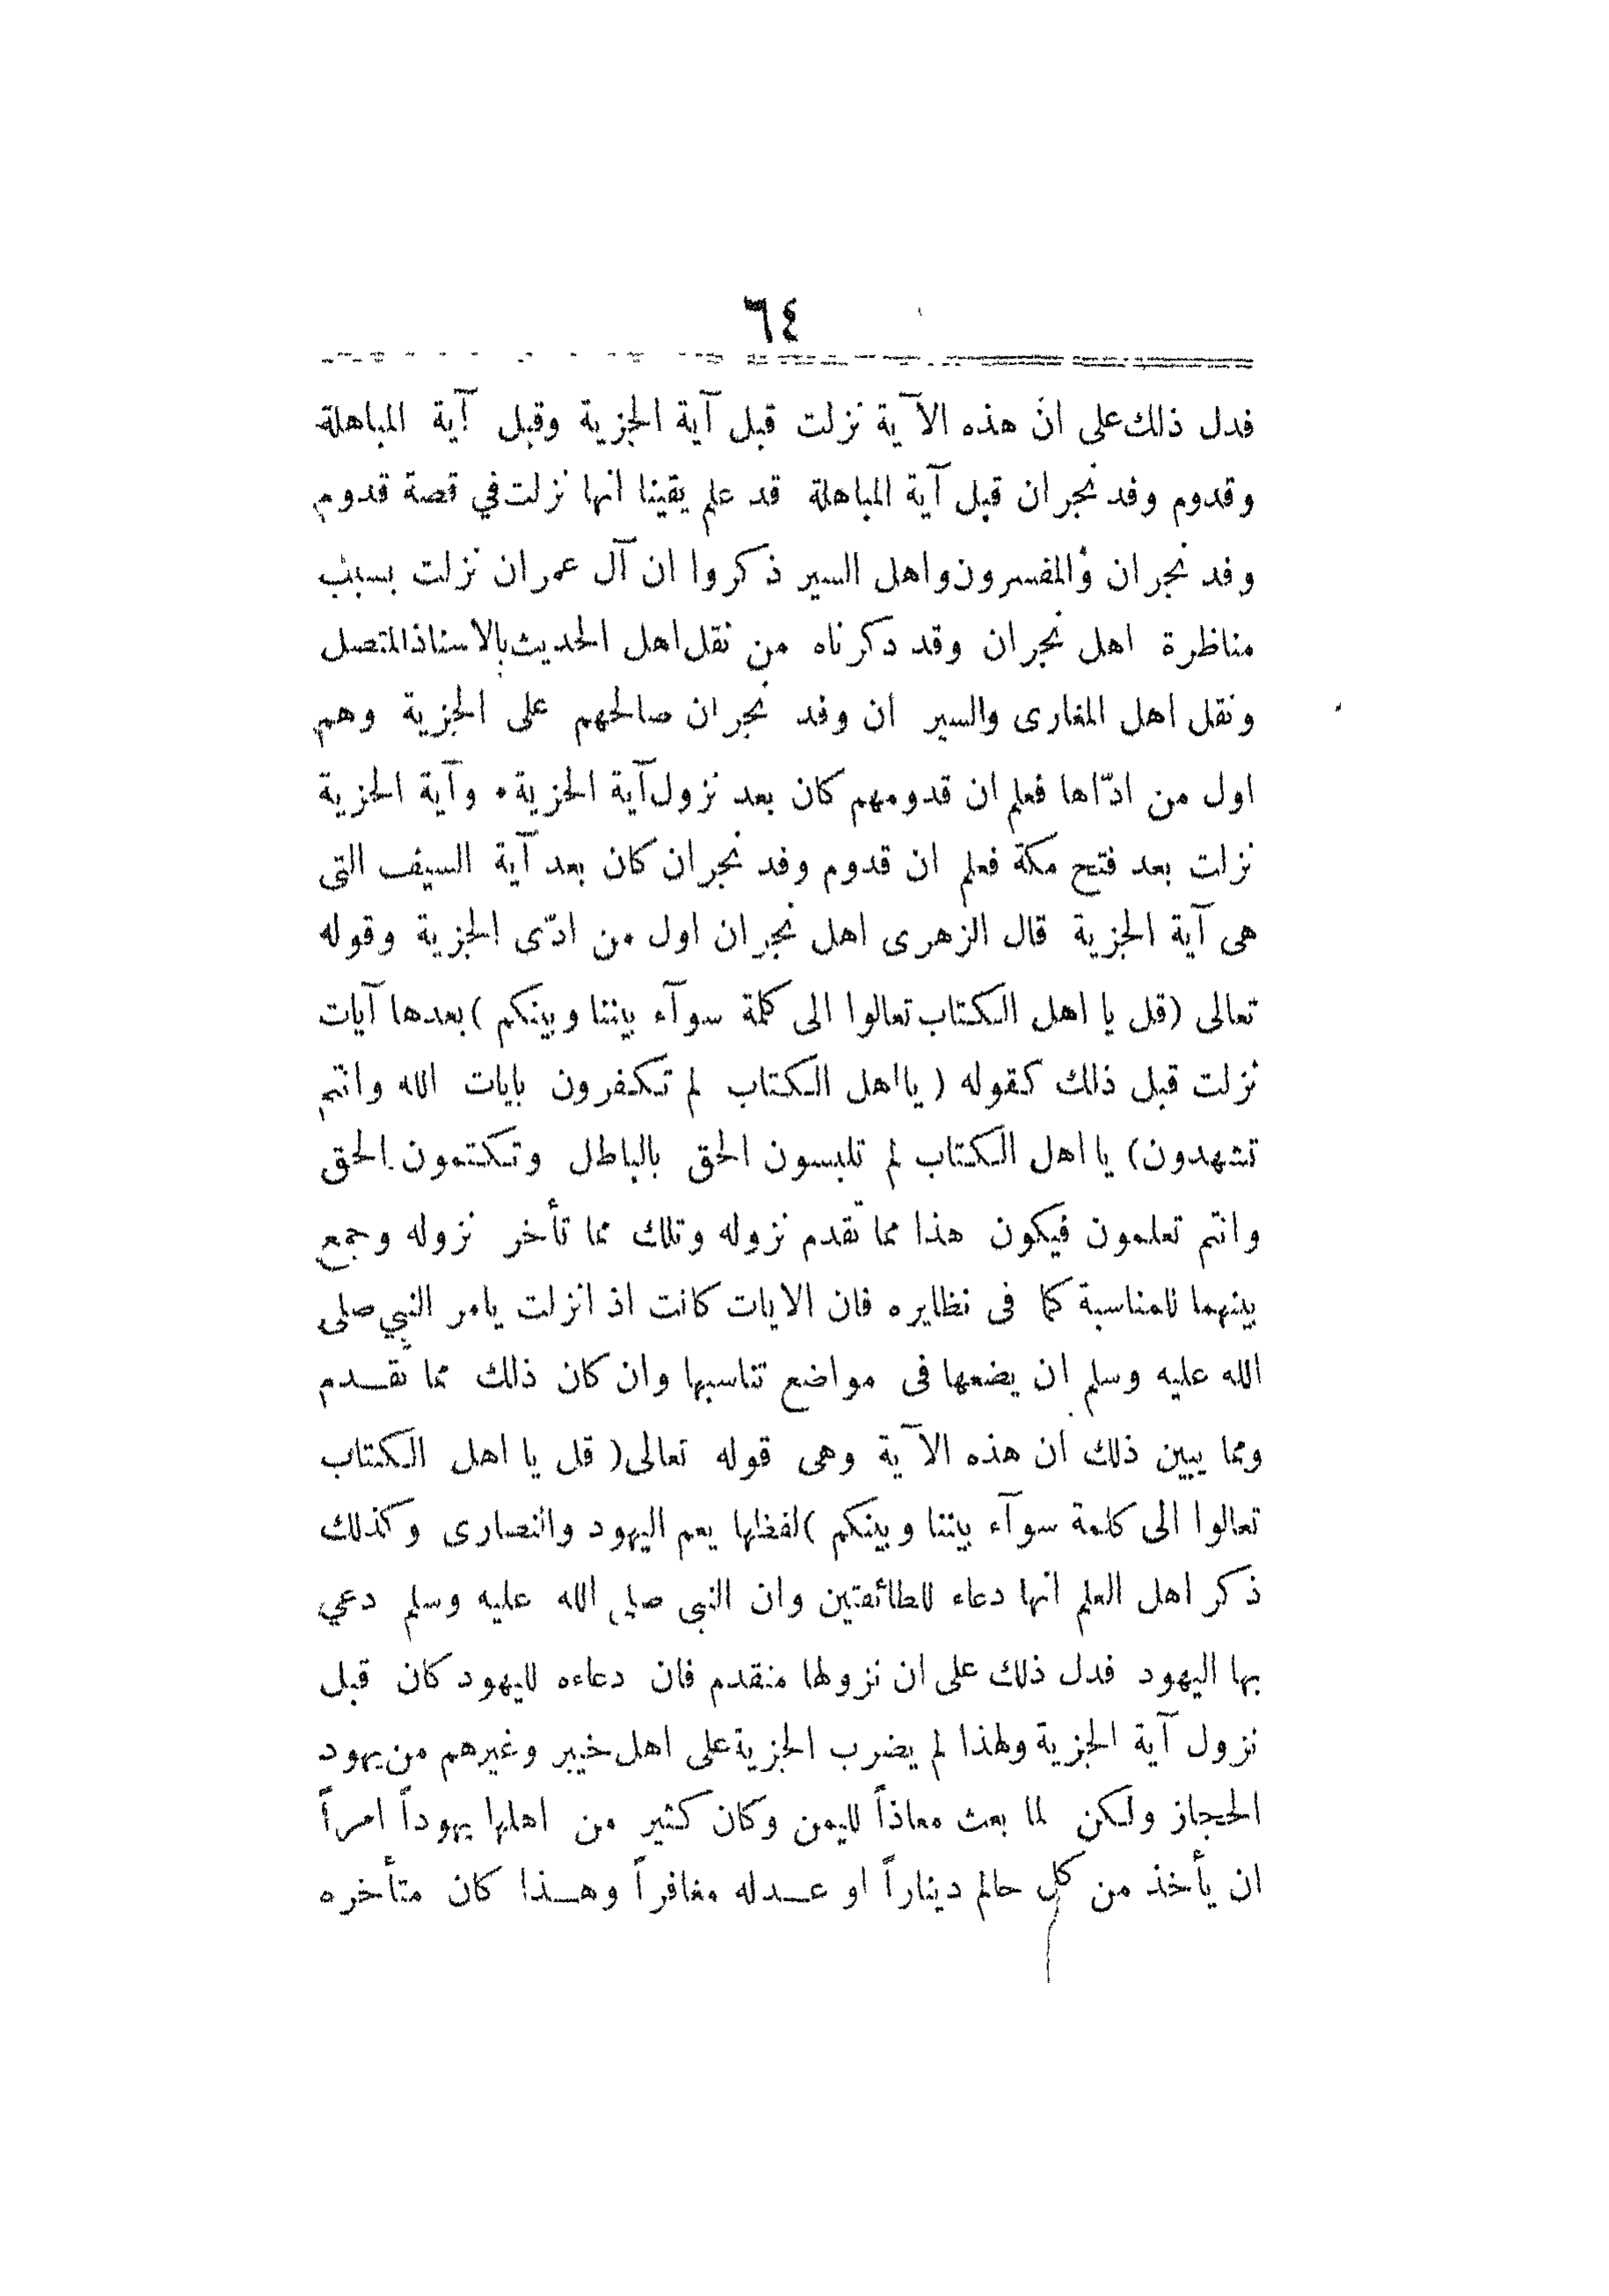 ٦٤
فدل ذلك على ان هذه الآية نزلت قبل آية الجزية وقبل آية المباهلة
وقدوم وفد نجران قبل آية المباهلة قد علم يقينا انها نزلت في قصة قدوم
وفد نجران والمفسرون واهل السير ذكروا ان آل عمران نزلت بسبب
مناظرة اهل نجران وقد دكرناه من نقل اهل الحديث بالاسناد المتصل
ونقل اهل المغارى والسير ان وفد نجران صالحهم على الجزية وهم
اول من ادّاها فعلم ان قدومهم كان بعد نزول آية الجزية. وآية الجزية
نزلت بعد فتح مكة فعلم ان قدوم وفد نجران كان بعد آية السيف التى
هى آية الجزية قال الزهرى اهل نجران اول من ادّى الجزية وقوله
تعالى (قل يا اهل الكتاب تعالوا الى كلمة سوآء بيننا وبينكم) بعدها آيات
نزلت قبل ذلك كقوله (يا اهل الكتاب لم تكفرون بايات الله وانتم
تشهدون) يا اهل الكتاب لم تلبسون الحق بالباطل وتكتمون الحق
وانتم تعلمون فيكون هذا مما تقدم نزوله وتلك مما تأخر نزوله وجمع
بينهما للمناسبة كما فى نظايره فان الايات كانت اذ انزلت يامر النبي صلى
الله عليه وسلم ان يضعها فى مواضع تناسبها وان كان ذلك مما تقدم
ومما يبين ذلك ان هذه الآية وهى قوله تعالى (قل يا اهل الكتاب
تعالوا الى كلمة سوآء بيننا وبينكم) لفظها يعم اليهود والنصارى وكذلك
ذكر اهل العلم انها دعاء للطائفتين وان النبى صلى الله عليه وسلم دعي
بها اليهود فدل ذلك على ان نزولها متقدم فان دعاءه لليهود كان قبل
نزول آية الجزية ولهذا لم يضرب الجزية على اهل خيبر وغيرهم من يهود
الحجاز ولكن لما بعث معاذاً لليمن وكان كثير من اهلها يهوداً امراً
ان يأخذ من كل حالم ديناراً او عدله مغافراً وهذا كان متأخره